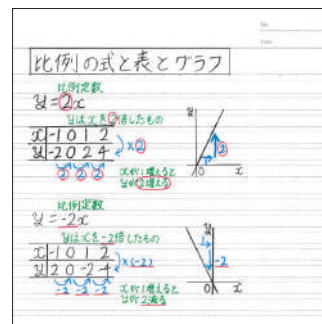 No.
Date
比例の式と表とグラフ
比例定数
y=2x
yはxを2倍したもの
x -1 0 1 2
y -2 0 2 4
×2
2 2 2
xが1増えると
yが2増える
y
2
1
O x
比例定数
y=-2x
yはxを-2倍したもの
x -1 0 1 2
y 2 0 -2 -4
×(-2)
-2 -2 -2
xが1増えると
yが2減る
y
1
-2
O x